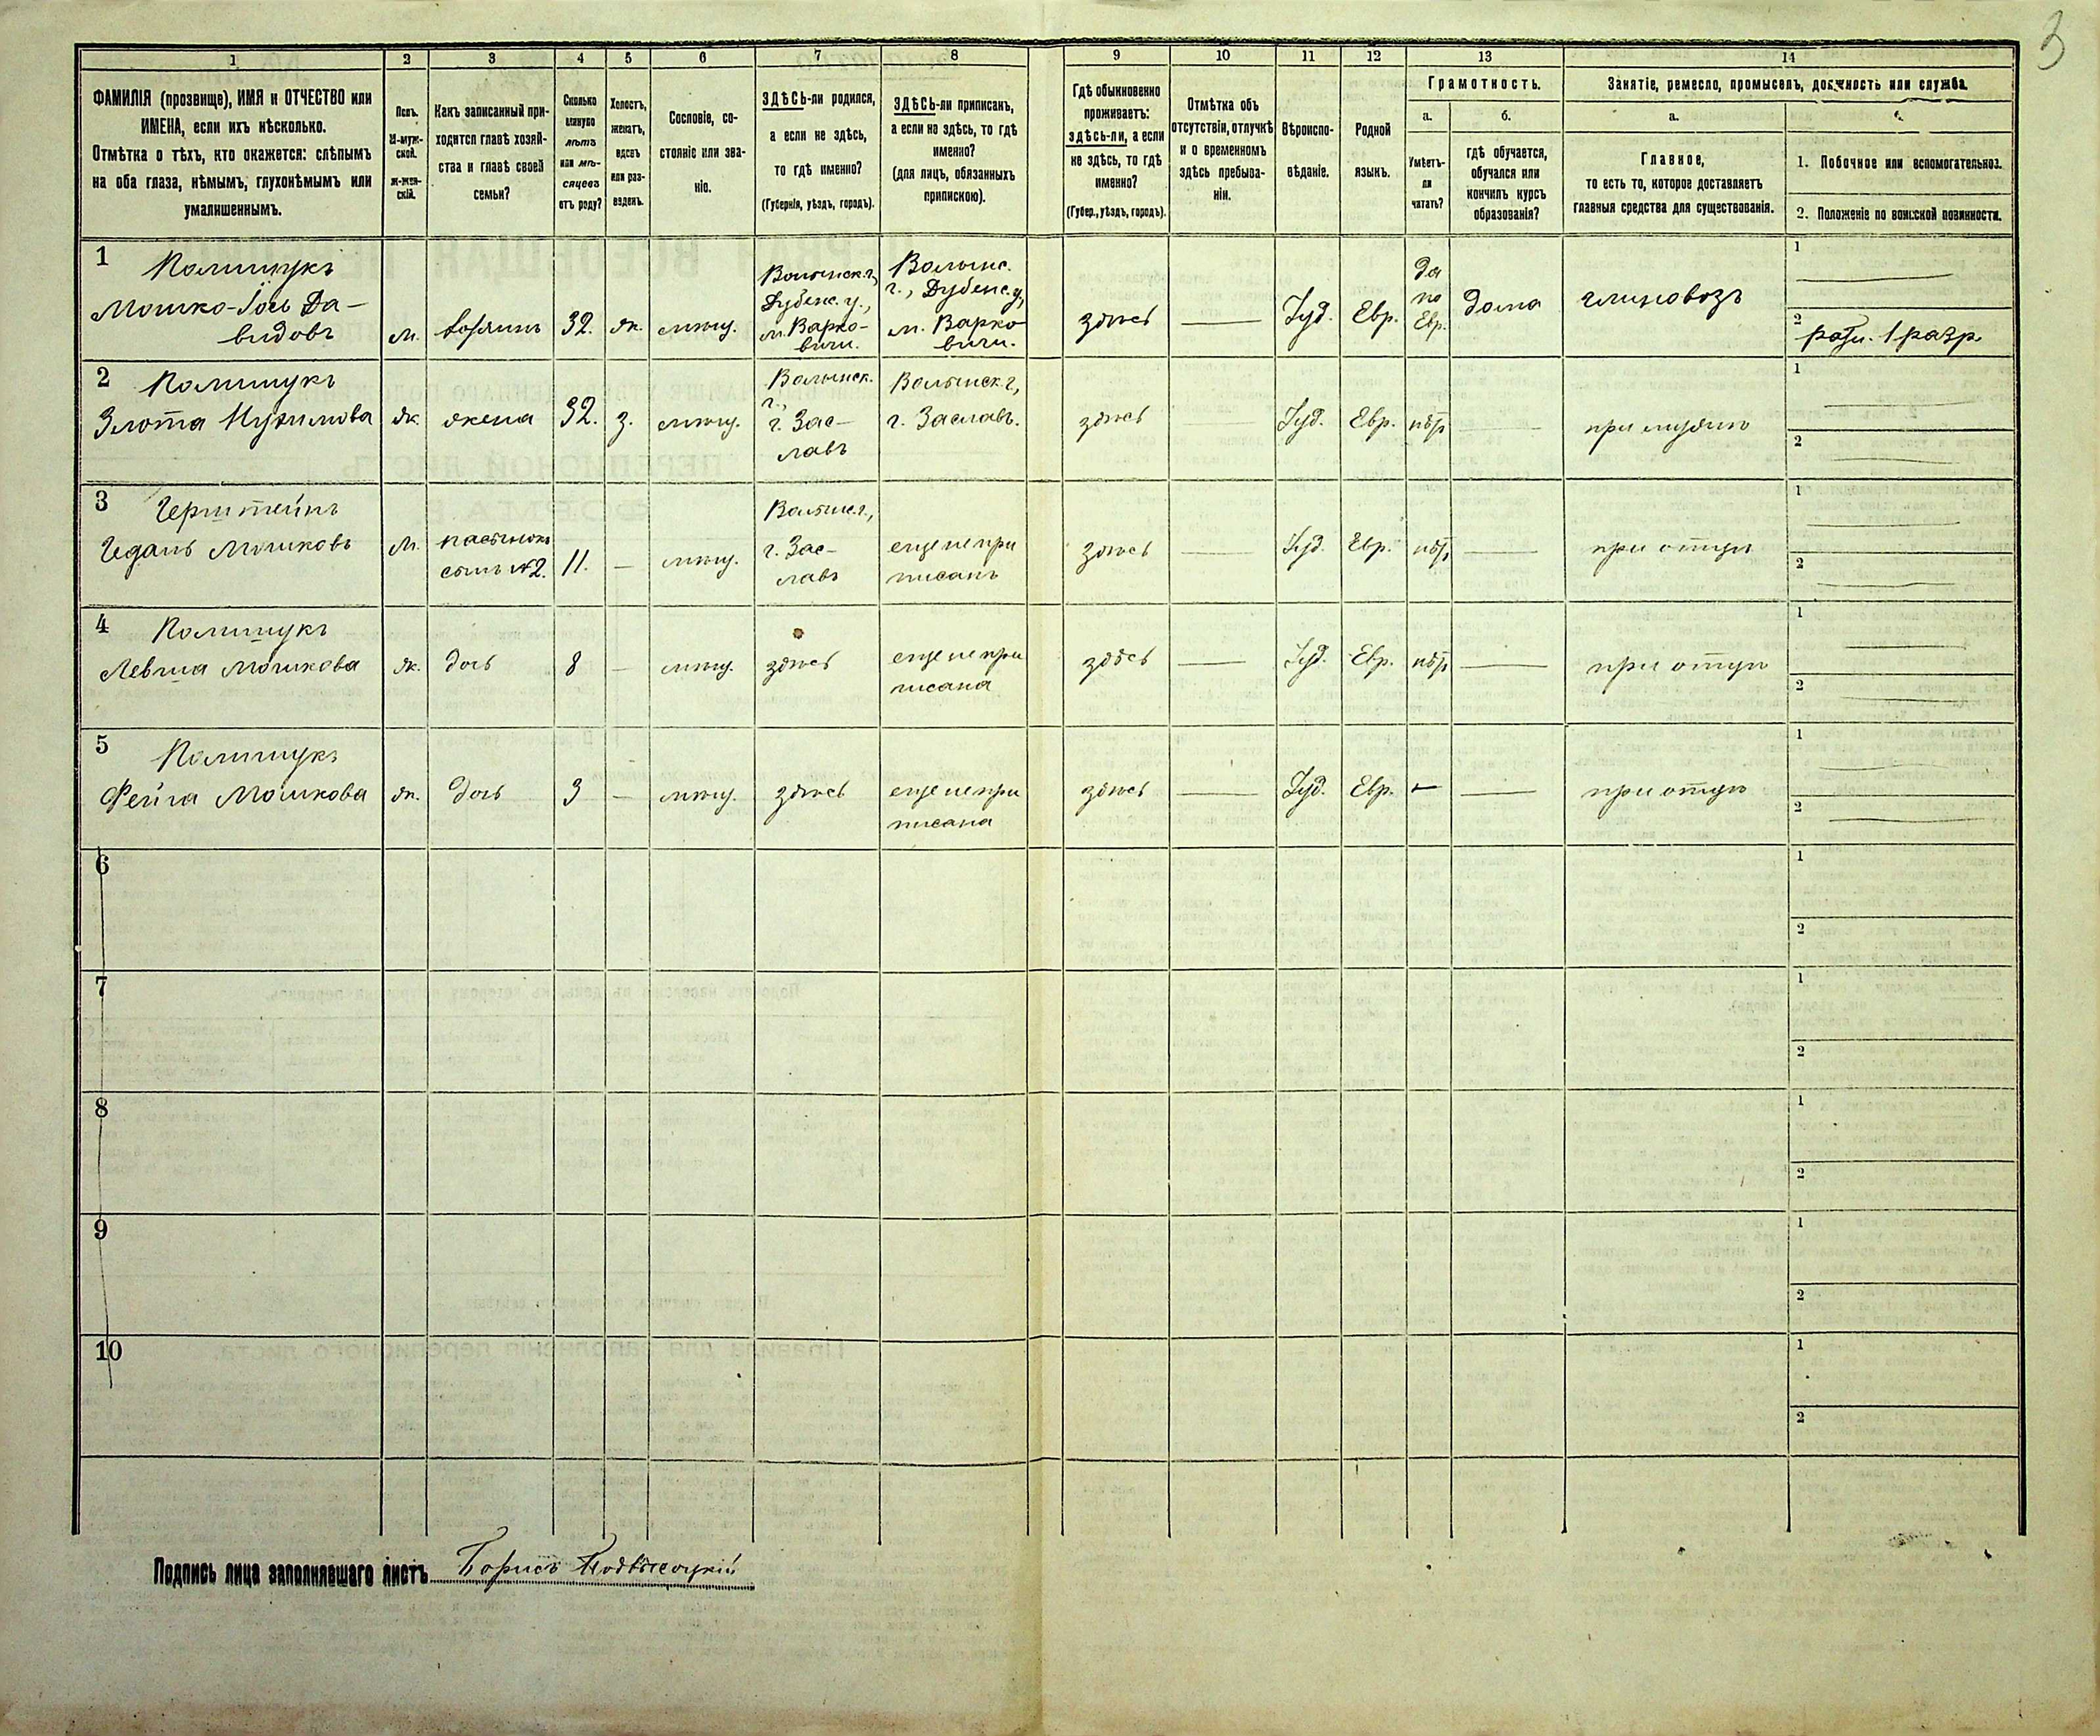 3
1 2 3 4 5 6 7 8 9 10 11 12 13 14
ФАМИЛІЯ (прозвище), ИМЯ и ОТЧЕСТВО или
ИМЕНА, если ихъ нѣсколько.
Отмѣтка о тѣхъ, кто окажется: слѣпымъ
на оба глаза, нѣмымъ, глухонѣмымъ или
умалишеннымъ.
Полъ.
М-муж-
ской.
Ж-жен-
скій.
Какъ записанный при-
ходится главѣ хозяй-
ства и главѣ своей
семьи?
Сколько
минуло
лѣтъ
или мѣ-
сяцевъ
отъ роду?
Холостъ,
женатъ,
вдовъ
или раз-
веденъ.
Сословіе, со-
стояніе или зва-
ніе.
ЗДѢСЬ-ли родился,
а если не здѣсь,
то гдѣ именно?
(Губернія, уѣздъ, городъ).
ЗДѢСЬ-ли приписанъ,
а если не здѣсь, то гдѣ
именно?
(для лицъ, обязанныхъ
припискою).
Гдѣ обыкновенно
проживаетъ:
здѣсь-ли, а если
не здѣсь, то гдѣ
именно?
(Губер., уѣздъ, городъ).
Отмѣтка объ
отсутствіи, отлучкѣ
и о временномъ
здѣсь пребыва-
ніи.
Вѣроиспо-
вѣданіе.
Родной
языкъ.
Грамотность.
а.
Умѣетъ-
ли
читать?
б.
гдѣ обучается,
обучался или
кончилъ курсъ
образованія?
Занятіе, ремесло, промыселъ, должность или служба.
а.
Главное,
то есть то, которое доставляетъ
главныя средства для существованія.
б.
1. Побочное или вспомогательное.
2. Положеніе по воинской повинности.
1 Полищукъ
Мошко-Іось Да-
видовъ
м.
хозяинъ
32.
ж.
мѣщ.
Волынск. г.,
Дубенс. у.,
м. Варко-
вичи.
Волынс.
г., Дубенс. у,
м. Варко
вичи.
здѣсь
Іуд.
Евр.
да
по
Евр.
дома
глиновозъ
1
2
ратн. 1 разр.
2 Полищукъ
Злота Нухимова
ж.
жена
32.
з.
мѣщ.
Волынск.
г.,
г. Зас-
лавъ
Волынск г,
г. Заславъ.
здѣсь
Іуд.
Евр.
нѣт
при мужѣ
1
2
3 Герштейнъ
Гедань Мошковъ
м.
пасынокъ
сынъ №2.
11.
мѣщ.
Волынс. г.,
г. Зас-
лавъ
еще не при
писанъ
здѣсь
Іуд.
Евр.
нѣт
при отцѣ
1
2
4 Полищукъ
Мошкова
ж.
дочь
8
мѣщ.
здѣсь
еще не при
писана
здѣсь
Іуд.
Евр.
нѣт
при отцѣ
1
2
5 Полищукъ
Фейга Мошкова
ж.
дочь
3
мѣщ.
здѣсь
еще не при
писана
здѣсь
Іуд.
Евр.
при отцѣ
1
2
6
1
2
7
1
2
8
1
2
9
1
2
10
1
2
Подпись лица заполнявшаго листъ Борисъ Подвысоцкій